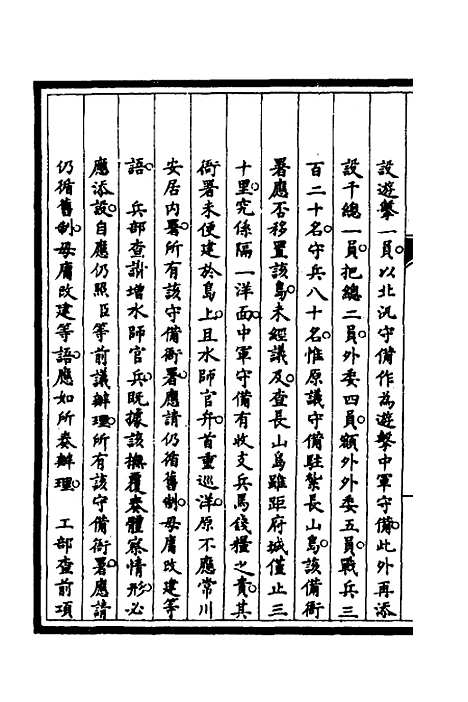 設遊擊一員以北汛守備作為遊擊中軍守備此外再添
設千總一員把總二員外委四員額外外委五員戰兵三
百二十名守兵八十名惟原議守備駐紮長山島該備衙
署應否移置該島未經議及查長山島雖距府城僅止三
十里究係隔一洋面中軍守備有收支兵馬錢糧之責其
衙署未便建於島上且水師官兵首重巡洋原不應常川
安居內署所有該守備衙署應請仍循舊制毋庸改建等
語　兵部查訓增水師官兵旣據該撫覆奏體察情形必
應添設自應仍照臣等前議辦理所有該守備衙署應請
仍循舊制毋庸改建等語應如所奏辦理　工部查前項